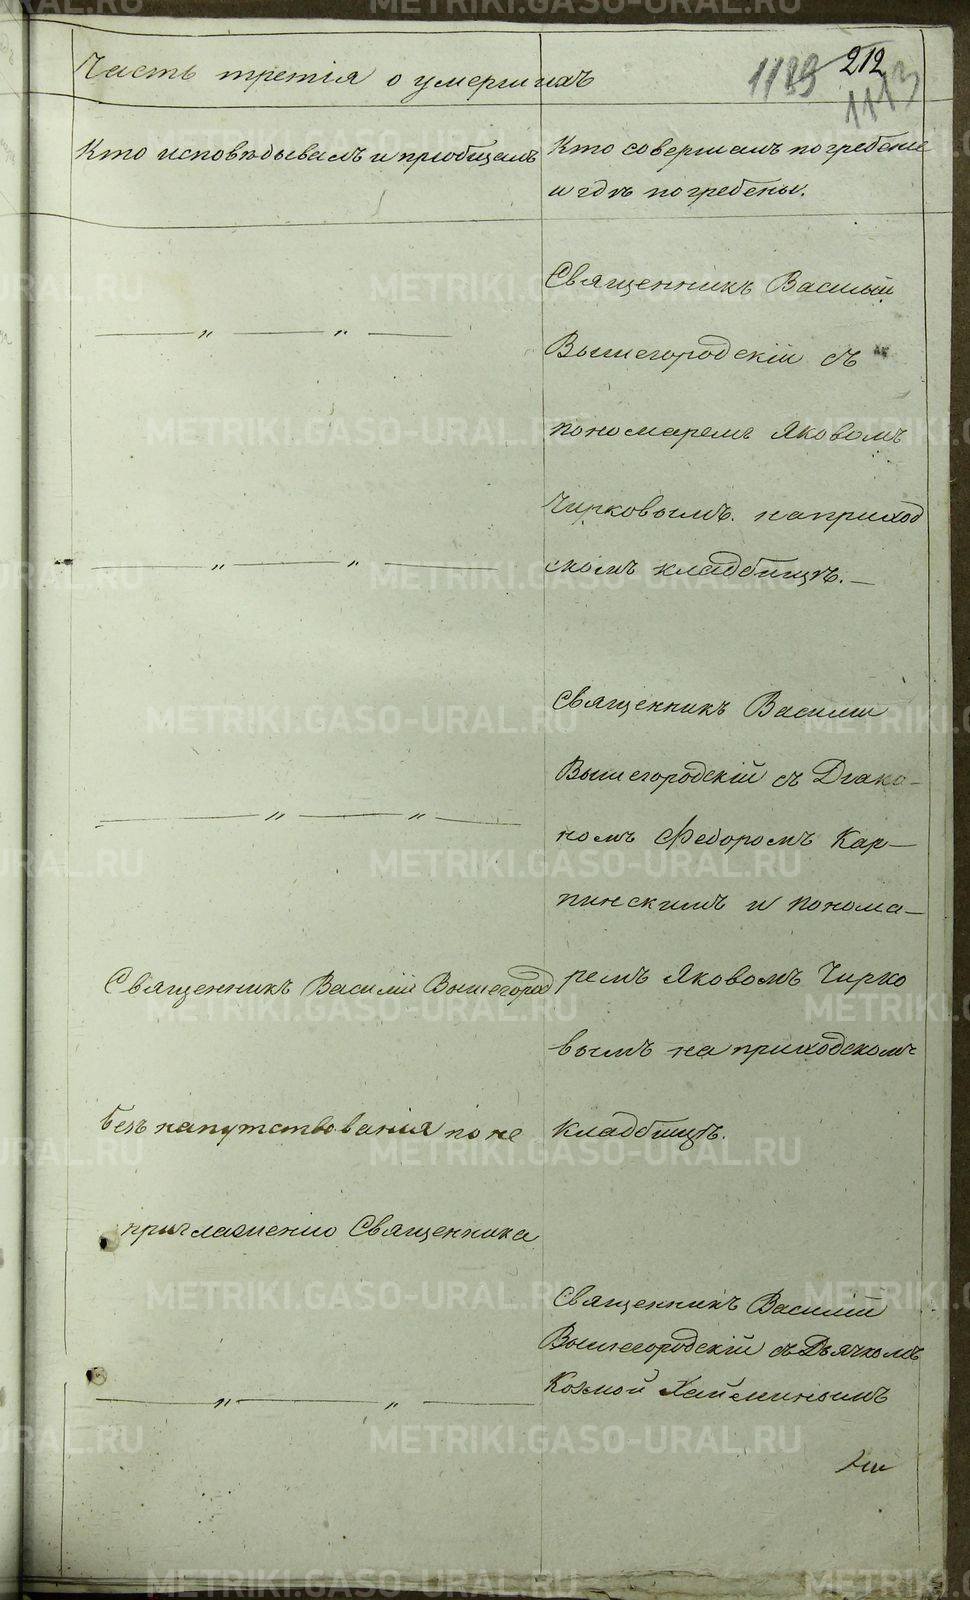 Часть третія о умершихъ
1189
212
1113
Кто исповѣдывалъ и пріобщалъ
Кто совершалъ погребеніе
и гдѣ погребены.
Священникъ Василій
Вышегородскій съ
пономаремъ Яковомъ
Чирковымъ. на приход
скомъ кладбищѣ.
Священникъ Василій
Вышегородскій съ Діако-
номъ Федоромъ Кар-
пинскимъ и понома-
ремъ Яковомъ Чирко
вымъ на приходскомъ
кладбищѣ.
Священникъ Василій Вышегород
безъ напутствованія по не
приглашенію Священника
Священникъ Василій
Вышегородскій съ Дьячкомъ
Козмой Хайминымъ
METRIKI.GASO-URAL.RU